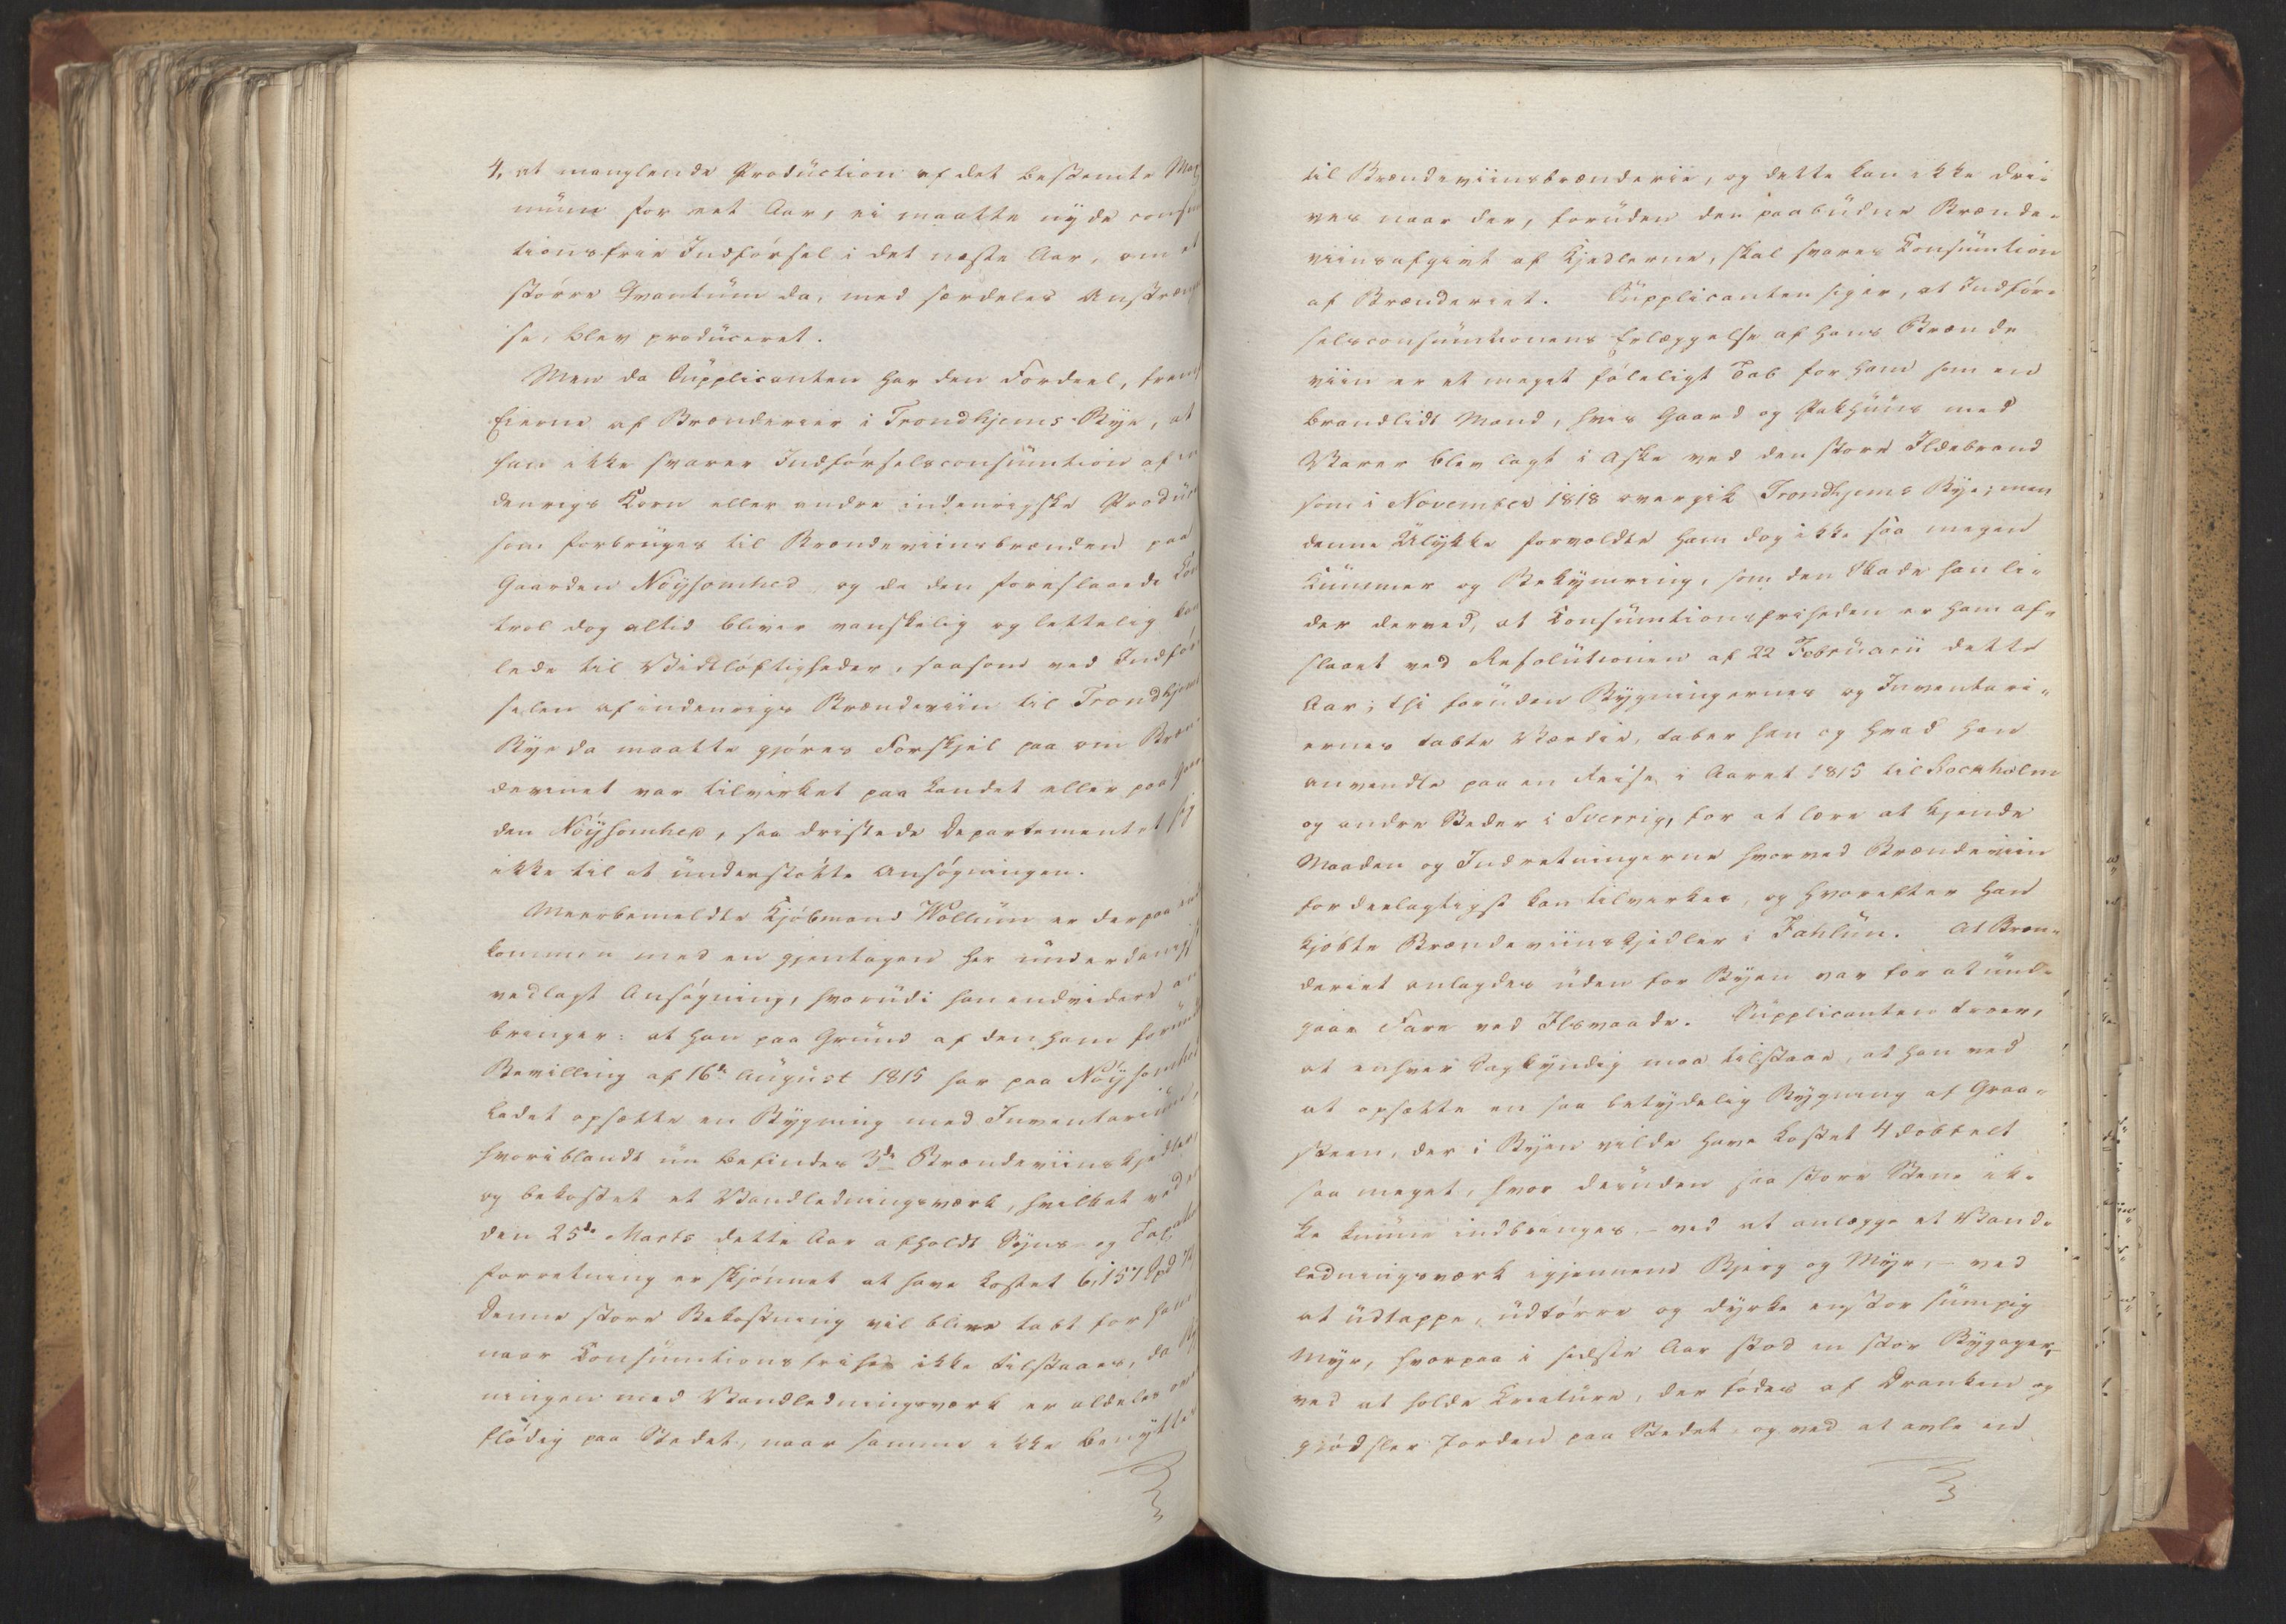 4, at manglende Prodüction af det bestemte Max
müm for eet Aar, ei maatte nÿde consum
tionsfrie Indførsel i det næste Aar, om et
større Qvantüm da, med særdeles Anstrængel
se, blev prodüceret.
Men da Süpplicanten har den Fordeel, frem
Eierne af Brænderier i Trondhjems Bÿe, at
han ikke svarer Indførselsconsümtion af in
denrigs Korn eller andre indenrigske Prodüc
som forbrüges til Brændeviinsbrænden paa
Gaarden Nöÿsomhed, og da den foreslaaede Con
trol dog altid bliver vanskelig og lettelig kan
lede til Vidtløftigheder, saasom ved Indfør
selen af indenrigs Brændeviin til Trondhjems
Bÿe da maatte gjøres Forskjel paa om Bræn
devinet var tilvirket paa Landet eller paa Gaar
den Nöÿsomhed, saa dristede Departementet sig
ikke til at ünderstøtte Ansøgningen.
Meerbemeldte Kjøbmand Wollüm er derpaa ind
kommen med en gjentagen her ünderdanigst
vedlagt Ansøgning, hvorüdi han endvidere an
bringer: at han paa Gründ af den ham foründte
Bevilling af 16de Aügüst 1815 har paa Nöÿsomhed
ladet opsætte en Bÿgning med Inventariüm,
hvoriblandt nü befindes 3de Brændeviinskjedler,
og bekostet et Vandledningsværk, hvilket ved
den 25de Marts dette Aar afholdt Sÿns- og Tax
forretning er skjønnet at have kostet 6,157 Spd
Denne store Bekostning vil blive tabt for ham
naar Consümtionsfrihed ikke tilstaaes, da Bÿg
ningen med Vandledningsværk er aldeles over
flødig paa Stedet, naar samme ikke benÿttes
til Brændeviinsbrænderie, og dette kan ikke dri-
ves naar der, forüden den paabüdne Brænde-
viinsafgivt af Kjedlerne, skal svares Consümtion
af Brænderiet. Süpplicanten siger, at Indfør-
selsconsümtionens Erlæggelse af hans Brænde
viin er et meget føleligt Tab for ham som en
brandlidt Mand, hvis Gaard og Pakhüüs med
Varer blev lagt i Aske ved den store Ildebrand
som i November 1818 overgik Trondhjems Bÿe; men
denne Ülÿkke forvoldte ham dog ikke saa megen
Kümmer og Bekÿmring, som den Skade han li-
der derved, at Consümtionsfriheden er ham af-
slaaet ved Resolütionen af 22 Febrüarii dette
Aar; thi forüden Bÿgningernes og Inventari-
ernes tabte Værdie, taber han og hvad han
anvendte paa en Reise i Aaret 1815 til Stockholm
og andre Steder i Sverrig, for at lære at kjende
Maaden og Indretningerne hvorved Brændeviin
fordeelagtigst kan tilvirkes, og hvorefter han
kjøbte Brændeviinskjedler i Fahlün. At Bræn-
deriet anlagdes üden for Bÿen var for at ünd-
gaae Fare ved Ilsvaade. Süpplicanten troer,
at enhver Sagkÿndig maa tilstaae, at han ved
at opsætte en saa betÿdelig Bÿgning af Graa-
steen, der i Bÿen vilde have kostet 4 dobbelt
saa meget, hvor desüden saa store Stene ik-
ke künne indbringes, – ved at anlægge et Vand-
ledningsværk igjennem Bjerg og Mÿr, – ved
at üdtappe, üdtørre og dÿrke en stor sümpig
Mÿr, hvorpaa i sidste Aar stod en stor Bÿgager,
ved at holde Creatüre, der fødes af Dranken og
gjødsler Jorden paa Stedet, og ved at avle en